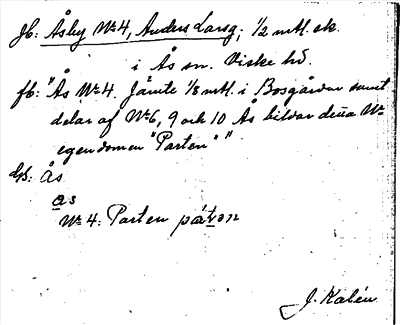 Jb: Åsby No 4, Anders Larsg, 1/2 mtl. sk.
i Ås sn. Viske hd.
fb: "Ås No 4. Jämte 1/8 mtl. i Bosgården samt
delar af No 6, 9 och 10 Ås bildar denna No
egendomen "Parten""
Us: Ås
as
No 4: Parten pátən
J. Kalén